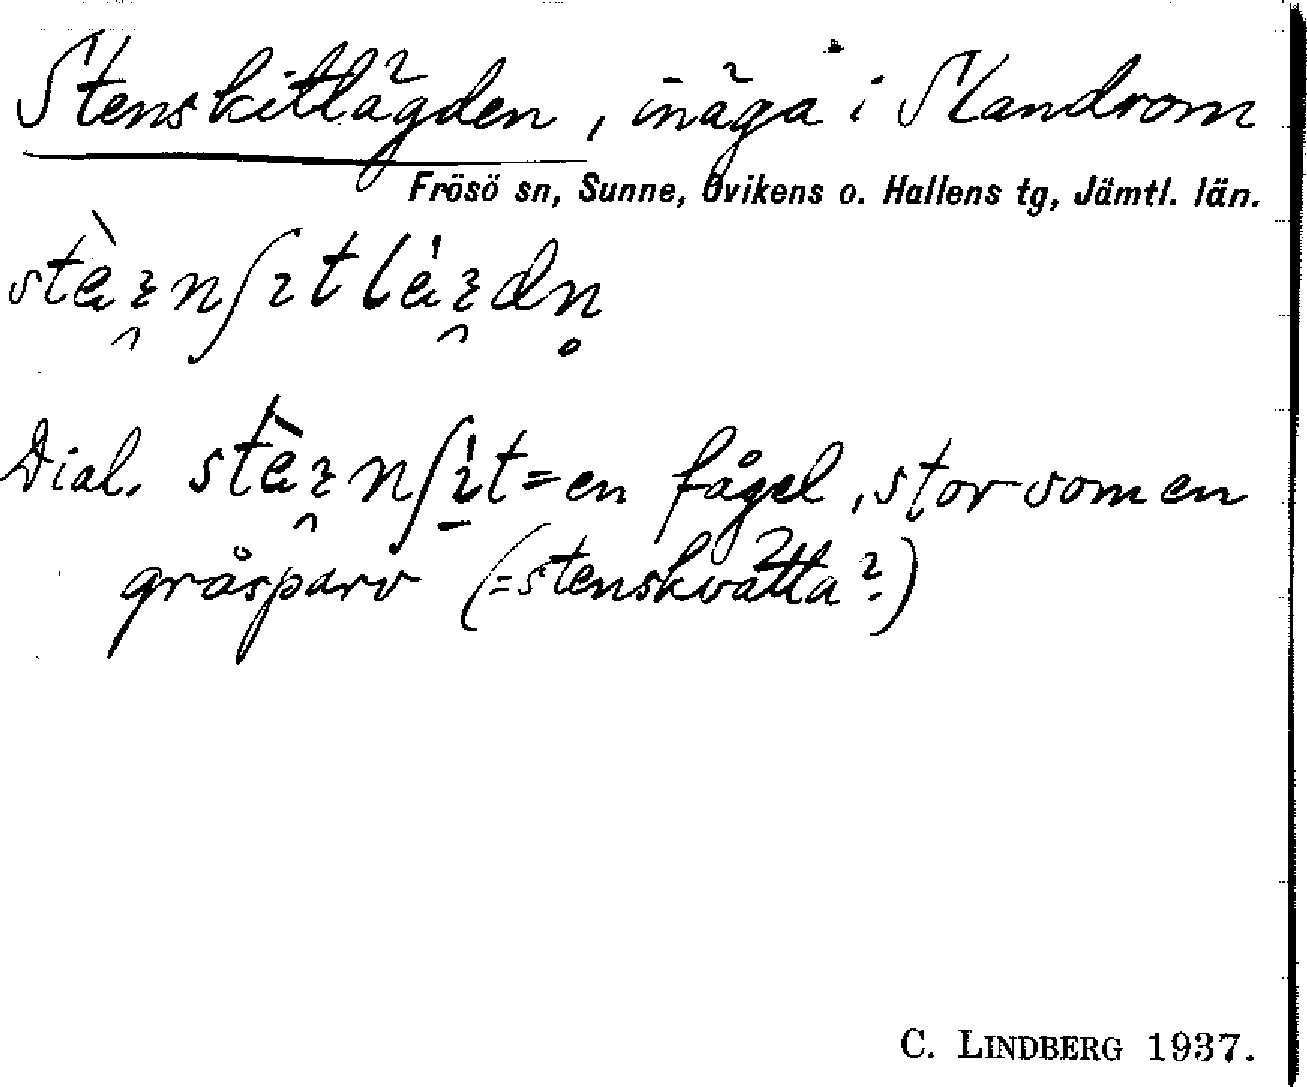 Stenskitlägden, inäga i Standrom
Frösö sn, Sunne, Ovikens o. Hallens tg, Jämtl. län.
Dial. = en fågel, stor som en
gråsparv (= stenskvätta?)
C. LINDBERG 1937.